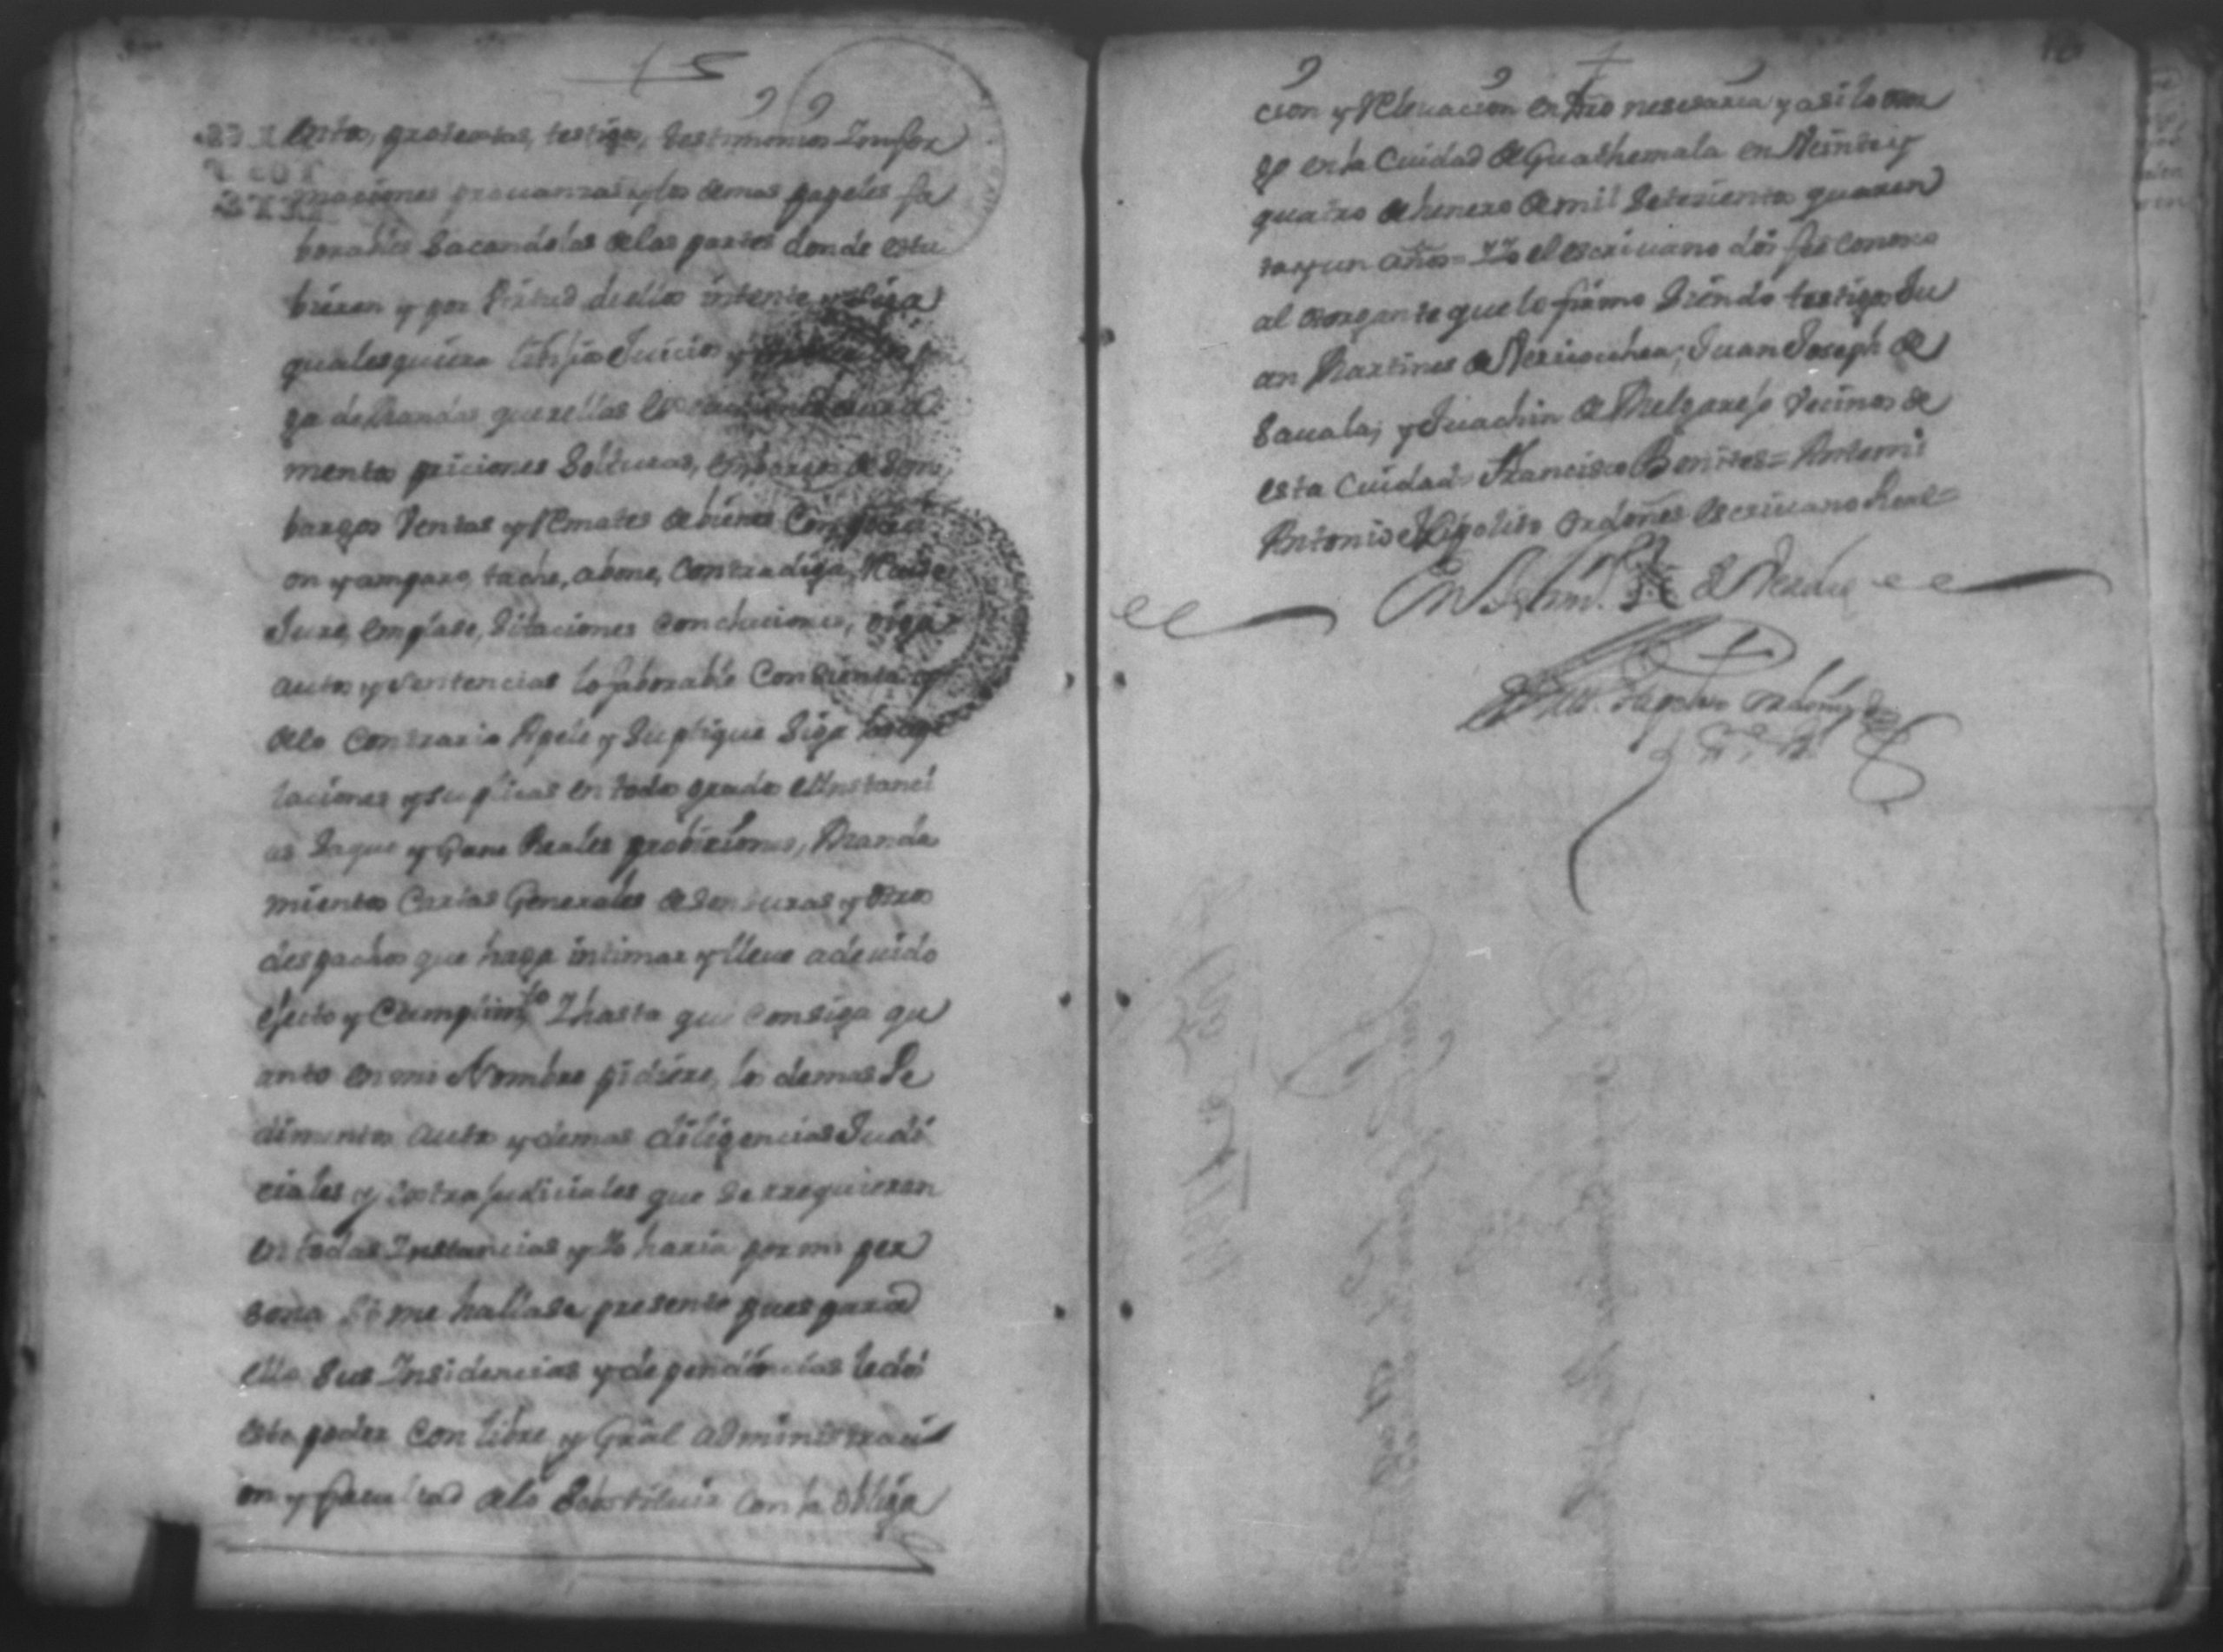 entos, protestas, testigos, testimonios Imfor
maciones prouanzas y los demas papeles fa
borables sacandolos de las partes donde estu
bieren y por virtud de ellos intente y siga
qualesquiera Juicios y
ga demandas querellas
mentos priciones solturas, embargos desem
bargos ventas y Remates de bienes
on y amparo, tache, abone, Contradiga, Recuse
Jure, emplase, sitaciones conclusiones, oiga
autos y sentencias lo faborable Consienta y
de lo Contrario Apele y Suplique Siga las ape
laciones y suplicas en todos grados e Instanci
as Saque y Gane Reales probisiones, Manda
mientos Cartas Generales de Sensuras y otros
despachos que haga intimar y lleue a deuido
efecto y Cumplimto. Y hasta que Consiga qu
anto en mi Nombre pidiere, los demas Pe
dimentos autos y demas diligencias Judi
ciales y extrajudiciales que se rrequieran
en todas Instancias y Yo haria por mi per
sona si me hallase presente pues para
ello Sus Insidencias y dependencias le doi
este poder Con libre y Gral administraci
on y facultad de lo Sobstituir Con la obliga
cion y Releuacion en dro nesesaria y asi lo otor
go en la Ciudad de Guathemala en Veinte y
quatro de henero de mil Setesientos quaren
ta y un años = Yo el escriuano doi fee conosco
al otorgante que lo firmo Siendo testigos Ju
an Martines de Juan Joseph de
Sauala; y Juachin de Melgarejo Vecinos de
esta Ciudad = Francisco Benites = Antemi
Antonio Hipolito Ordoñes escriuano Real =
En testimo. de Verdad
Anto. Hipolito Ordoñes